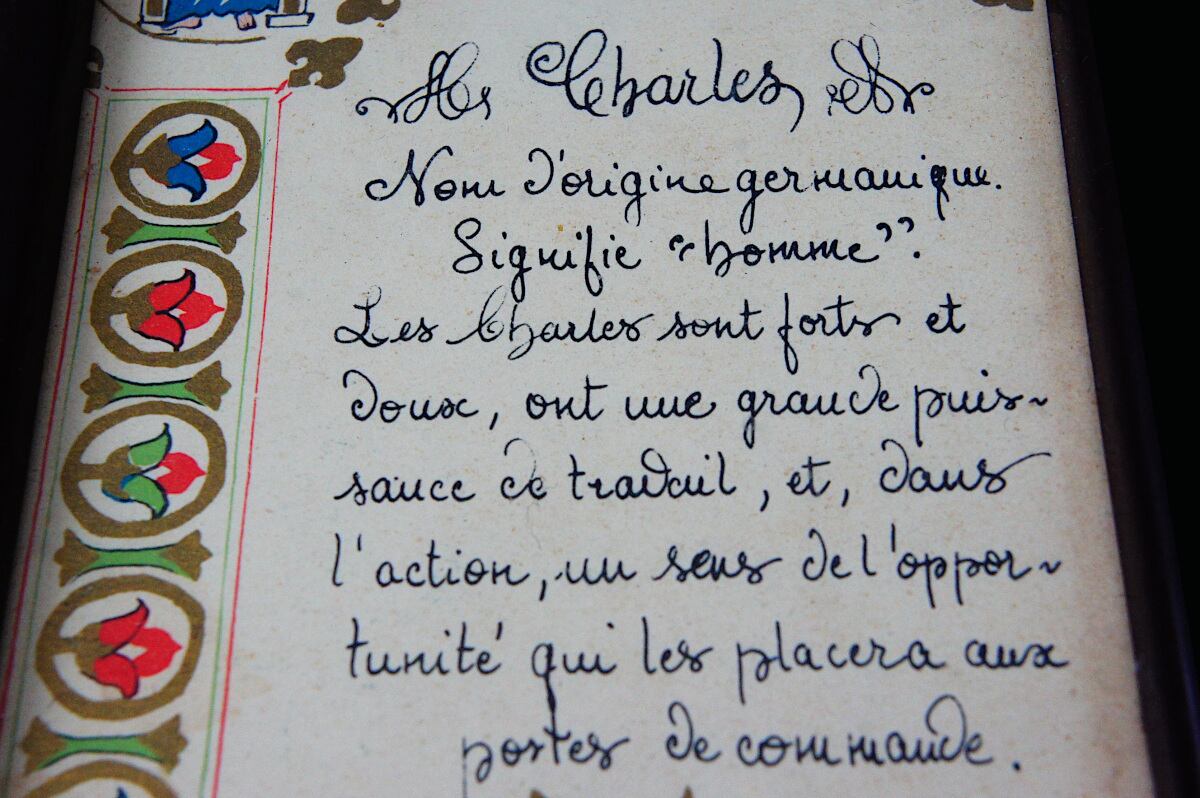 Charles
Nom d'origine germanique.
Signifie "homme".
Les Charles sont forts et
doux, ont une grande puis-
sance de travail, et, dans
l'action, un sens de l'oppor-
tunité qui les placera aux
postes de commande.